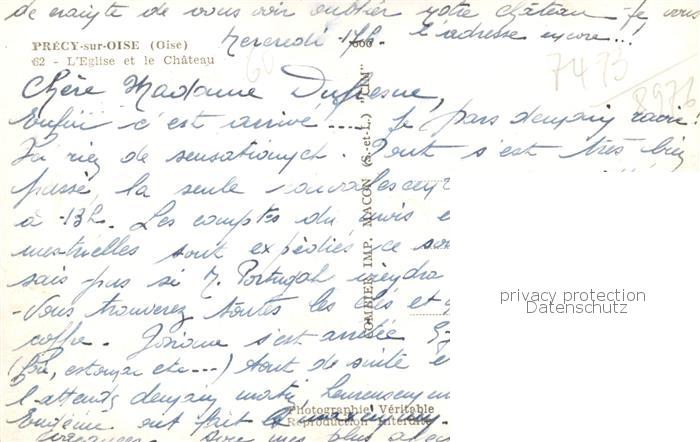 de crainte de vous voir oublier votre château - Je vous
l'adresse encore...
Mercredi 17h.
PRÉCY-sur-OISE (Oise)
62 - L'Eglise et le Château
60
7473
8976
Chère Madame Dufresne,
Enfin c'est arrivé .... Je pars demain ravie!
J'ai rien de sensationnel. Tout s'est très bien
passé, la seule convalescen
à 13h. Les comptes du mois e
mestrielles sont expédiés ce so
sais pas si M. Portugal viendra
- Vous trouverez toutes les clés et
coffre. Josiane s'est arrêtée
(foie, estomac etc...) tout de suite e
l'attends demain matin, heureusem
ont fait le
vacances. avec mes plus a
COMBIER IMP. MACON (S.-et-L.) "CIM"
Photographie Véritable
Reproduction Interdite
privacy protection
Datenschutz